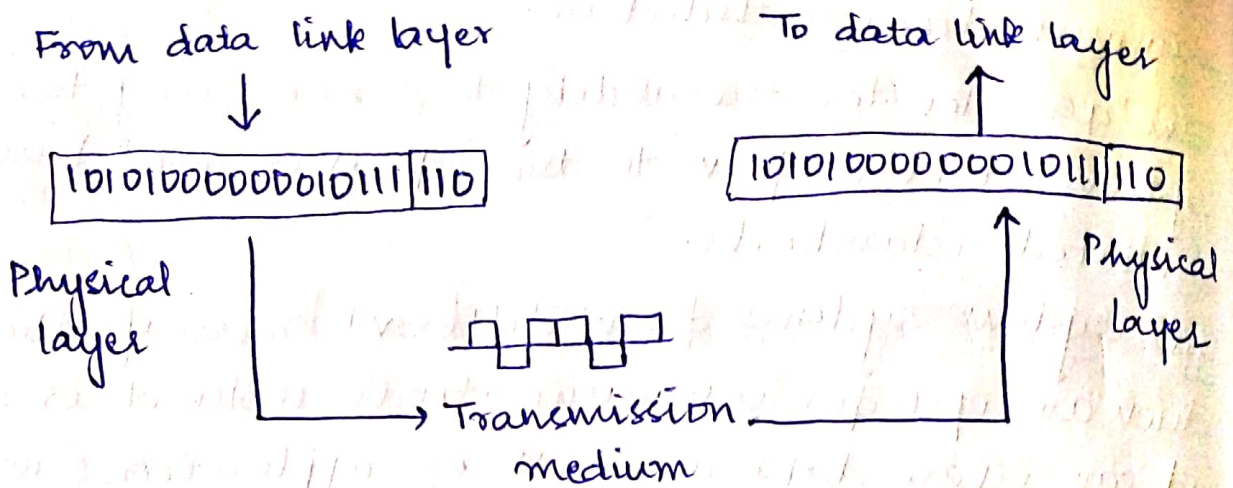 From data link layer
To data link layer
10101000000010111 110
10101000000010111 110
Physical
layer
Physical
layer
Transmission
medium